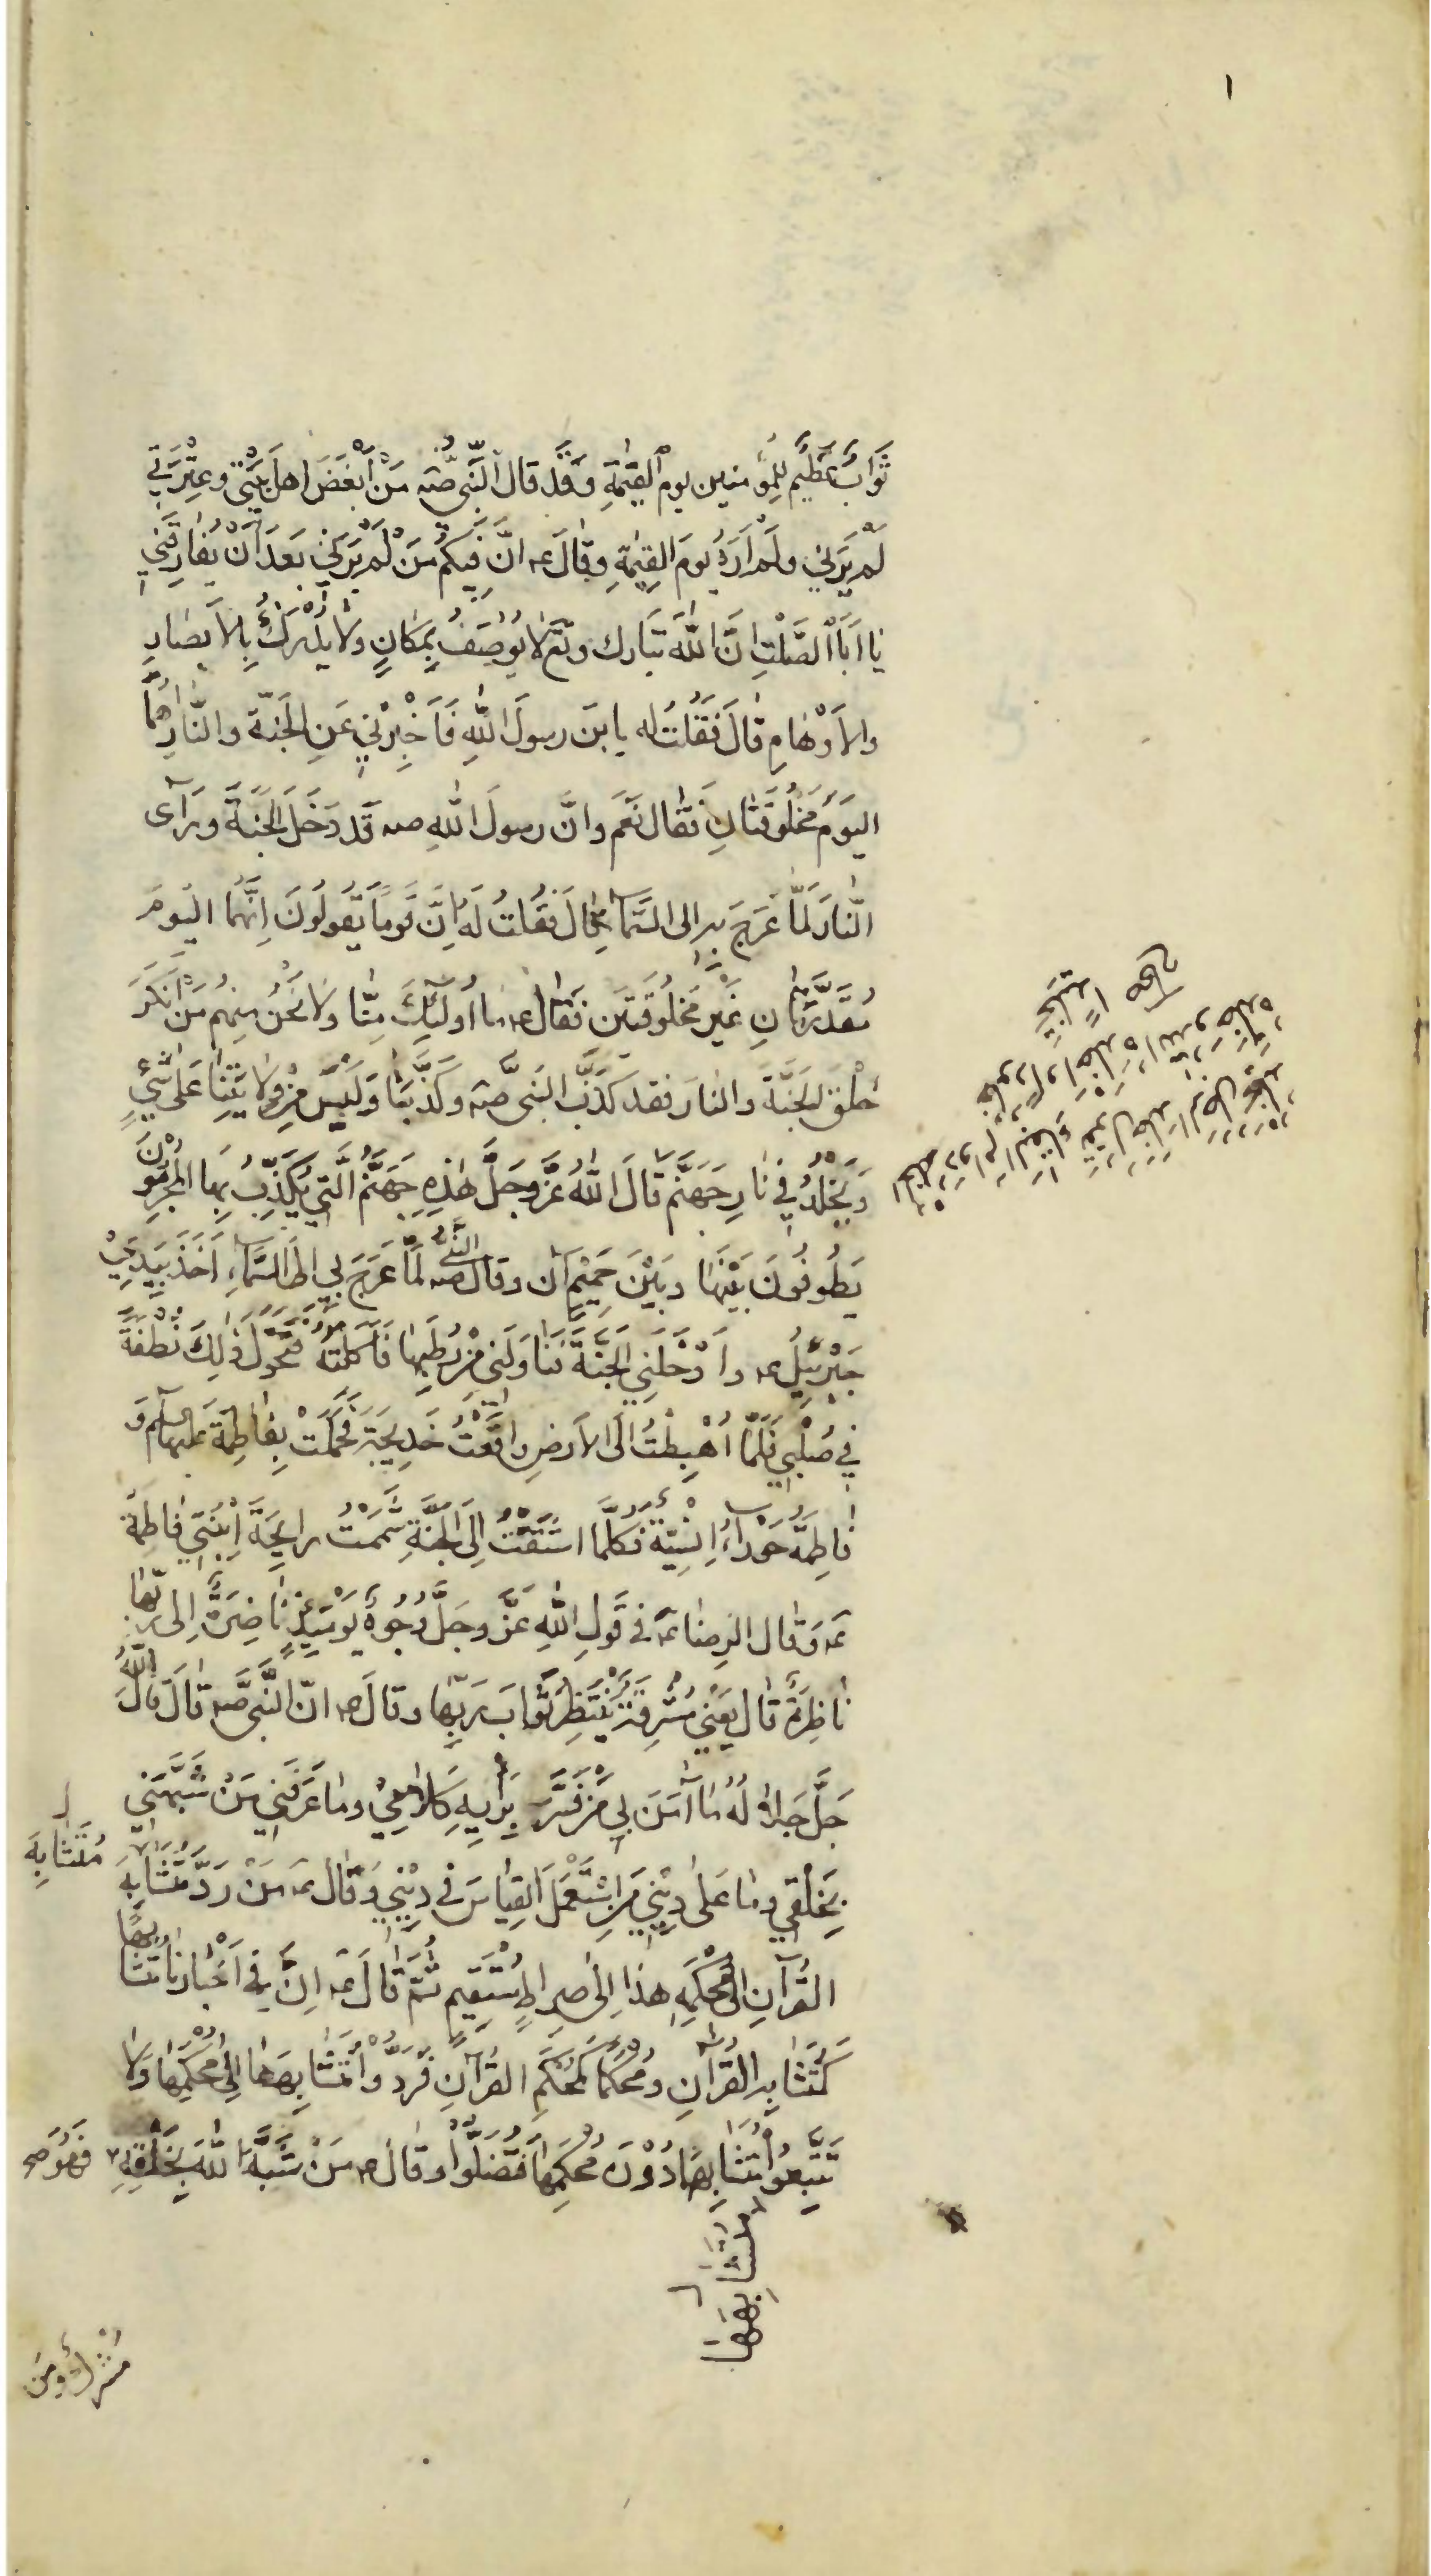 ١
ثَوَابٌ عَظِيمٌ لِلمُؤمنين يوم القِيٰمَةِ وَقَد قال النَّبىُّ صّه مَنْ أَبْغَضَ اهلَ بَيْتى وعِتْرَتى
لَمْ يَرَنى ولَمْ اَرَهُ يومَ القِيٰمَةِ وقٰالَ عہ انَّ فيكُم مَنْ لَمْ يَرَنى بَعدَ اَنْ يُفٰارِقَنى
يٰا اَبَا الصَّلْتِ انَّ اللّٰهَ تَبَارك وتَع لا يُوصَفُ بِمَكانٍ ولٰا يُدْرَكُ بِالاَبصٰارِ
والاَوْهٰامِ قٰالَ فَقُلتُ له يا بنَ رسولَ اللّٰهِ فَاَخْبِرْنى عَنِ الجَنّة والنّٰارِ اَهُمَا
اليَوم مَخْلُوقَتٰانِ فَقٰال نَعَم وانَّ رسولَ اللّٰهِ صہ قَد دَخَلَ الجَنَّةَ ورَآى
النّٰارَ لَمّٰا عَرَجَ بہ الى السَّمآءِ قٰالَ فَقُلتُ لَهُ اِنَّ قَوماً يَقولُونَ اِنَّهُمَا اليَومَ
مُقَدَّرَتٰانِ غَيْر مَخلُوقَتَين فَقٰال عہ مٰا اُولٰئِكَ مِنّٰا ولٰا نَحْنُ مِنهُم مَنْ اَنكَرَ
خَلْقَ الجَنَّةَ والنارَ فقد كَذَّبَ النَبىَّ صّہ وكَذَّبَنٰا وَلَيْسَ مِنْ وِلٰايَتِنٰا عَلٰى شَىْءٍ
ويُخْلَدُ فى نٰارِ جَهَنَّم قٰالَ اللّٰهُ عَزَّ وجَلَّ هٰذِهِ جَهَنَّمُ الَّتى يُكَذِّبُ بِهَا المُجْرِمُونَ
يَطُوفُونَ بَيْنَهٰا وبَيْنَ حَمِيْمٍ آن وقال النَّبىُّ صہ لَمّٰا عَرَجَ بى الى السَّمآءِ اَخَذَ بِيَدىْ
جَبْرَئيلُ عہ واَدْخَلَنِى الجَنَّةَ فَنٰاوَلَنى مِنْ رُطَبِهٰا فَاَكَلْتُهُ فَتَحَوَّلَ ذٰلِكَ نُطْفَةً
فى صُلْبى فَلَمّٰا اُهْبِطْتُ الَى الاَرضِ واقَعْتُ خَدِيجَةَ فَحَمَلَتْ بِفٰاطِمَةَ عليها السلم وَ
فٰاطِمَةُ حَوْرآءُ اِنْسِيَّة فَكُلَّمَا اشتَقْتُ اِلَى الجَنَّةِ شَمَمْتُ رايِحَةَ اِبْنَتى فٰاطِمَةَ
عہ وَقٰال الرضٰا عہ فى قَولِ اللّٰهِ عَزَّ وجَلَّ وُجُوهٌ يَوْمَئِذٍ نٰاضِرَةٌ اِلى رَبِّهٰا
نٰاظِرَةٌ قٰال يَعْنى مُشْرِقَةٌ يَنْتَظِرُ ثَوٰابَ رَبِّهٰا وقالَ عہ انّ النَّبىَّ صہ قٰالَ قٰالَ اللّٰهُ
جَلَّ جَلٰالُهُ مٰا آمَنَ بى مَنْ فَسَّرَ بِرَأيِهِ كَلٰامى وَمٰا عَرَفَنى مَنْ شَبَّهَنى
بِخَلْقى ومٰا عَلٰى دِيْنى مَنِ اسْتَعْمَلَ القِيٰاسَ فى دِيْنى وَقٰالَ عہ مَنْ رَدَّ مُتَشٰابِهَ
مُتَشٰابِهَ
القُرآنِ الٰى مُحْكَمِهِ هذٰا اِلٰى صِرٰاطٍ مُسْتَقيمٍ ثُمَّ قٰالَ عہ اِنَّ فى اَخْبٰارِنٰا مُتَشٰابِهاً
كَمُتَشٰابِهِ القُرآنِ ومُحْكَماً كَمُحْكَمِ القُرآنِ فَرُدُّوْا مُتَشٰابِهَهٰا اِلٰى مُحْكَمِهٰا وَلٰا
تَتَّبِعُوْا مُتَشٰابِهَهٰا دُوْنَ مُحْكَمِهٰا فَتَضِلُّوْا وقٰالَ عہ مَنْ شَبَّهَ اللّٰهَ بِخَلْقِهِ فَهُوَ
مُتَشٰابِهَهٰا
مُشْرِكٌ ومَن